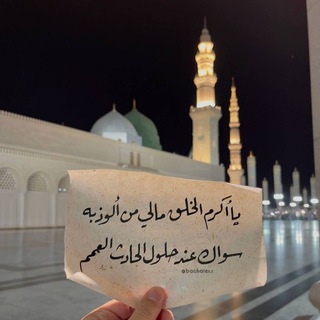 يا أكرم الخلق مالي من ألوذ به
سواك عند حلول الحادث العمم
@bachaier.s